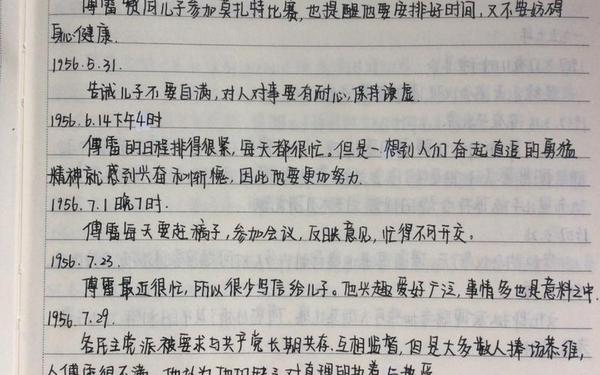 傅雷赞同儿子参加莫扎特比赛,也提醒他要安排好时间,又不要妨碍
身心健康.
1956.5.31.
告诫儿子不要自满,对人对事要有耐心,保持谦虚.
1956.6.14下午4时
傅雷的日程排得很紧,每天都很忙。但是一想到人们奋起直追的勇猛
精神就感到兴奋和惭愧,因此他要更加努力.
1956.7.1晚7时.
傅雷每天要赶稿子,参加会议,反映意见,忙得不可开交。
1956.7.23.
傅雷最近很忙,所以很少写信给儿子。他兴趣爱好广泛,事情多也是意料之中.
1956.7.29.
各民主党派被要求与共产党长期共存、互相监督,但是大多数人捧场恭维,
人傅雷很不满,他认为他们缺乏对真理的执着与热爱